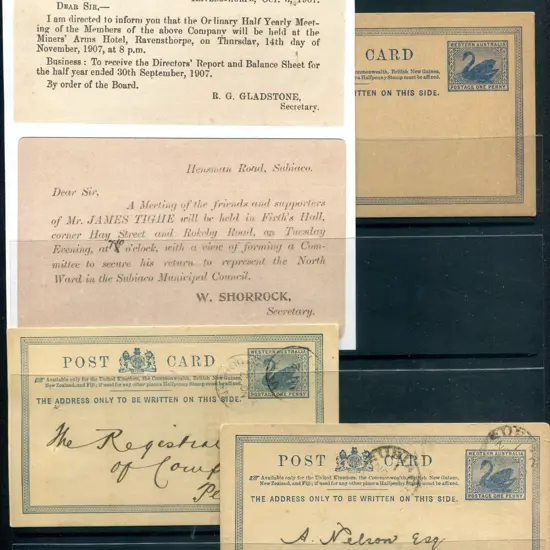 DEAR SIR,—
I am directed to inform you that the Ordinary Half Yearly Meet-
ing of the Members of the above Company will be held at the
Miners' Arms Hotel, Ravensthorpe, on Thursday, 14th day of
November, 1907, at 8 p.m.
Business: To receive the Directors' Report and Balance Sheet for
the half year ended 30th September, 1907.
By order of the Board.
R. G. GLADSTONE,
Secretary.
CARD
WESTERN AUSTRALIA
POSTAGE ONE PENNY
Commonwealth, British New Guinea,
Halfpenny Stamp must be affixed.
WRITTEN ON THIS SIDE.
Hensman Road, Subiaco.
Dear Sir,
A Meeting of the friends and supporters
of Mr. JAMES TIGHE will be held in Firth's Hall,
corner Hay Street and Rokeby Road, on Tuesday
Evening, at o'clock, with a view of forming a Com-
mittee to secure his return to represent the North
Ward in the Subiaco Municipal Council.
W. SHORROCK,
Secretary.
POST CARD
WESTERN AUSTRALIA
POSTAGE ONE PENNY
Available only for the United Kingdom, the Commonwealth, British New Guinea,
New Zealand, and Fiji; if used for any other place a Halfpenny Stamp must be affixed.
THE ADDRESS ONLY TO BE WRITTEN ON THIS SIDE.
The Registra
of Comp
Pe
POST CARD
WESTERN AUSTRALIA
POSTAGE ONE PENNY
Available only for the United Kingdom, the Commonwealth, British New Guinea,
New Zealand, and Fiji; if used for any other place a Halfpenny Stamp must be affixed.
THE ADDRESS ONLY TO BE WRITTEN ON THIS SIDE.
A. Nelson Esq